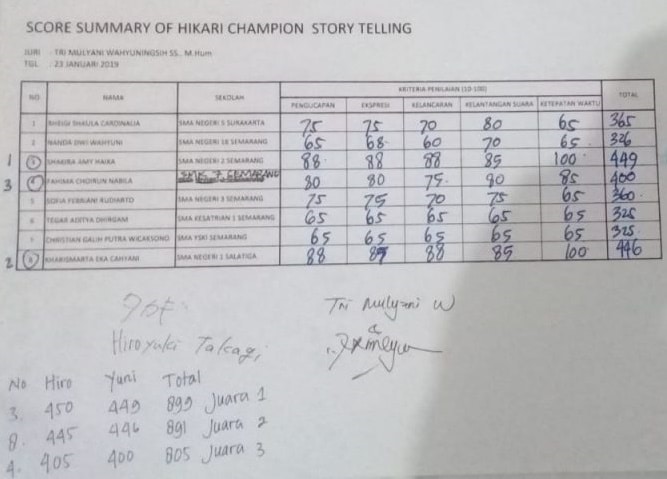 SCORE SUMMARY OF HIKARI CHAMPION STORY TELLING
JURI : TRI MULYANI WAHYUNINGSIH SS., M.Hum
TGL : 23 JANUARI 2019
NO NAMA SEKOLAH KRITERIA PENILAIAN (10-100) TOTAL
PENGUCAPAN EKSPRESI KELANCARAN KELANTANGAN SUARA KETEPATAN WAKTU
1 SHAULA CARDINALIA SMA NEGERI 5 SURAKARTA 75 75 70 80 65 365
2 NANDA DWI WAHYUNI SMA NEGERI 16 SEMARANG 65 68 60 70 65 326
1 3 SHAKIRA AMY HAIKA SMA NEGERI 2 SEMARANG 88 88 88 85 100 449
3 4 FAHIMA CHOIRUN NABILA SMK 7 SEMARANG 80 80 75 80 85 400
5 SOFIA FEBRIANI RUDIARTO SMA NEGERI 3 SEMARANG 75 75 70 75 65 360
6 TEGAR ADITYA DHIRGAM SMA KESATRIAN 1 SEMARANG 65 65 65 65 65 325
7 CHRISTIAN GALIH PUTRA WICAKSONO SMA YSKI SEMARANG 65 65 65 65 65 325
2 8 KHARISMARTA EKA CAHYANI SMA NEGERI 1 SALATIGA 88 85 88 85 100 446
Tri Mulyani W
Hiroyuki Takagi
No Hiro Yuni Total
3. 450 449 899 Juara 1
8. 445 446 891 Juara 2
4. 405 400 805 Juara 3